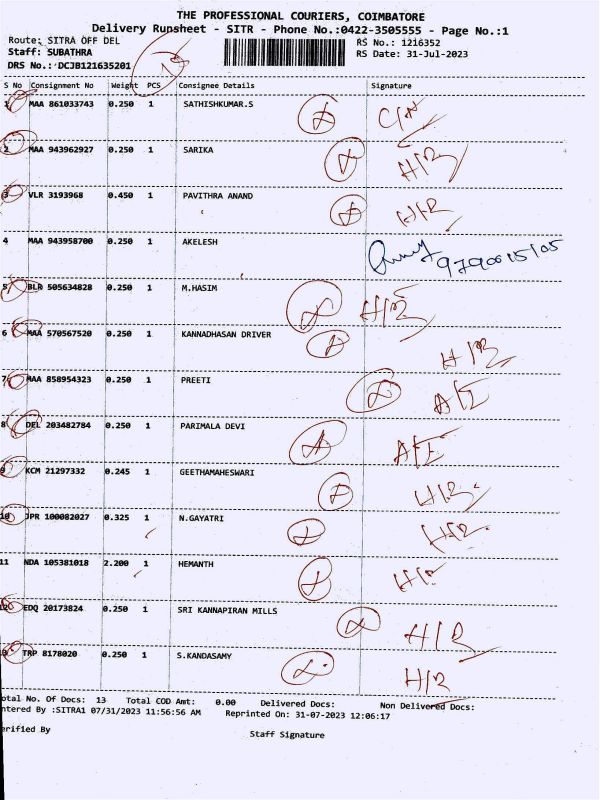 THE PROFESSIONAL COURIERS, COIMBATORE
Delivery Runsheet - SITR - Phone No.:0422-3505555 - Page No.:1
Route: SITRA OFF DEL
RS No.: 1216352
Staff: SUBATHRA
RS Date: 31-Jul-2023
DRS No.: DCJB121635201
S No Consignment No Weight PCS Consignee Details Signature
1 MAA 861033743 0.250 1 SATHISHKUMAR.S
2 MAA 943962927 0.250 1 SARIKA H/R
3 VLR 3193968 0.450 1 PAVITHRA ANAND H/R
4 MAA 943958700 0.250 1 AKELESH
5 BLR 505634828 0.250 1 M.HASIM H/R
6 MAA 570567520 0.250 1 KANNADHASAN DRIVER H/R
7 MAA 858954323 0.250 1 PREETI A/I
8 DEL 203482784 0.250 1 PARIMALA DEVI A/I
9 KCM 21297332 0.245 1 GEETHAMAHESWARI H/R
10 JPR 100082027 0.325 1 N.GAYATRI H/R
11 NDA 105381018 2.200 1 HEMANTH H/R
12 EDQ 20173824 0.250 1 SRI KANNAPIRAN MILLS H/R
TRP 8178020 0.250 1 S.KANDASAMY H/R
otal No. Of Docs: 13 Total COD Amt: 0.00 Delivered Docs: Non Delivered Docs:
ntered By :SITRA1 07/31/2023 11:56:56 AM Reprinted On: 31-07-2023 12:06:17
erified By
Staff Signature